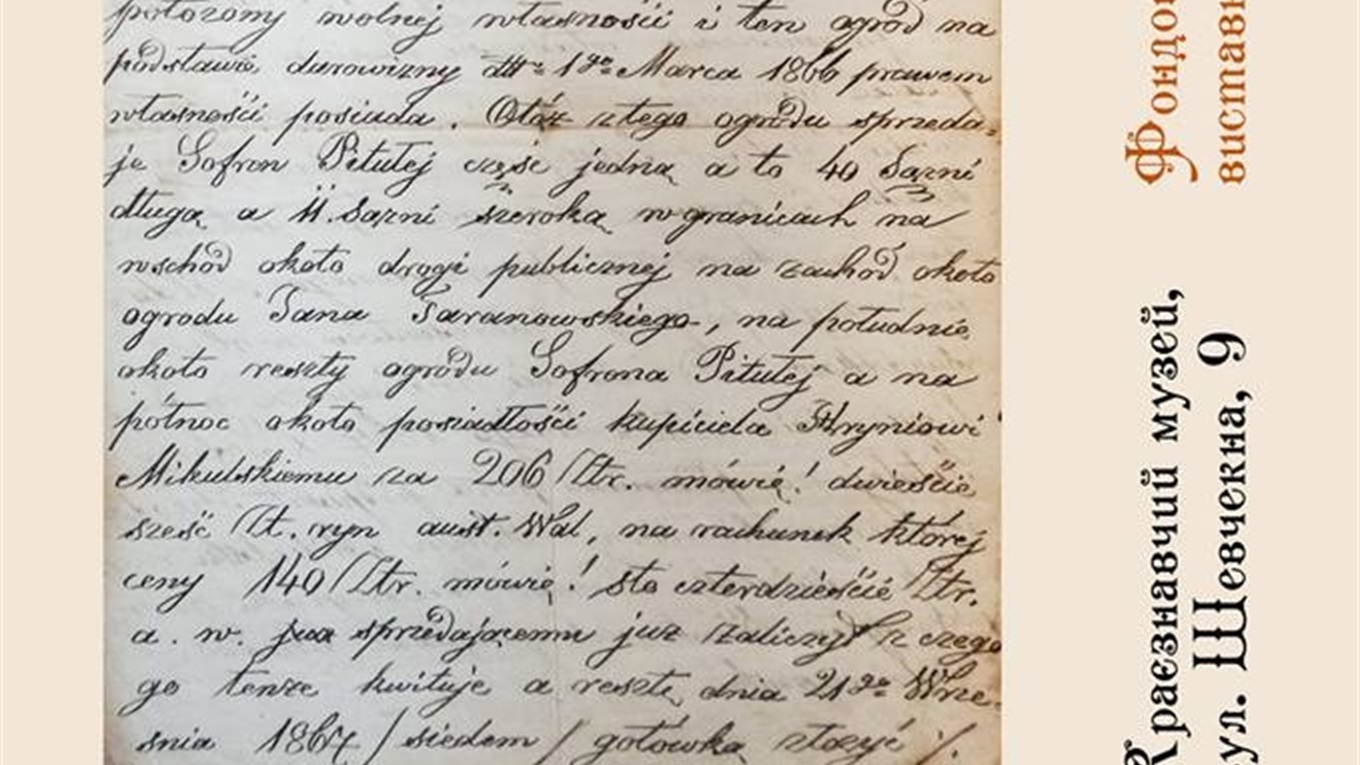 położony wolnej własności i ten ogród na
podstawie darowizny dtto 1go Marca 1866 prawem
własności posiada. Otóż z tego ogrodu sprzeda-
je Sofron Pitułej część jedną a to 40 Sązni
długą a 11. Sązni szeroką w granicach na
wschód około drogi publicznej na zachód około
ogrodu Jana Taranowskiego, na południe
około reszty ogrodu Sofrona Pitułej a na
północ około posiadłości kupiciela Hryniowi
Mikulskiemu za 206 Złr. mówię! dwieście
sześć Zł. ryn aust. Wal, na rachunek której
ceny 140 Złr. mówię! sto czterdzieście Złr.
a. w. sprzedającemu już zaliczył z czego
go tenże kwituje a resztę dnia 21go Wrze-
snia 1867 / siedem / gotówką złożyć
Фондо
вистав
Краєзнавчий музей,
вул. Шевчекна, 9